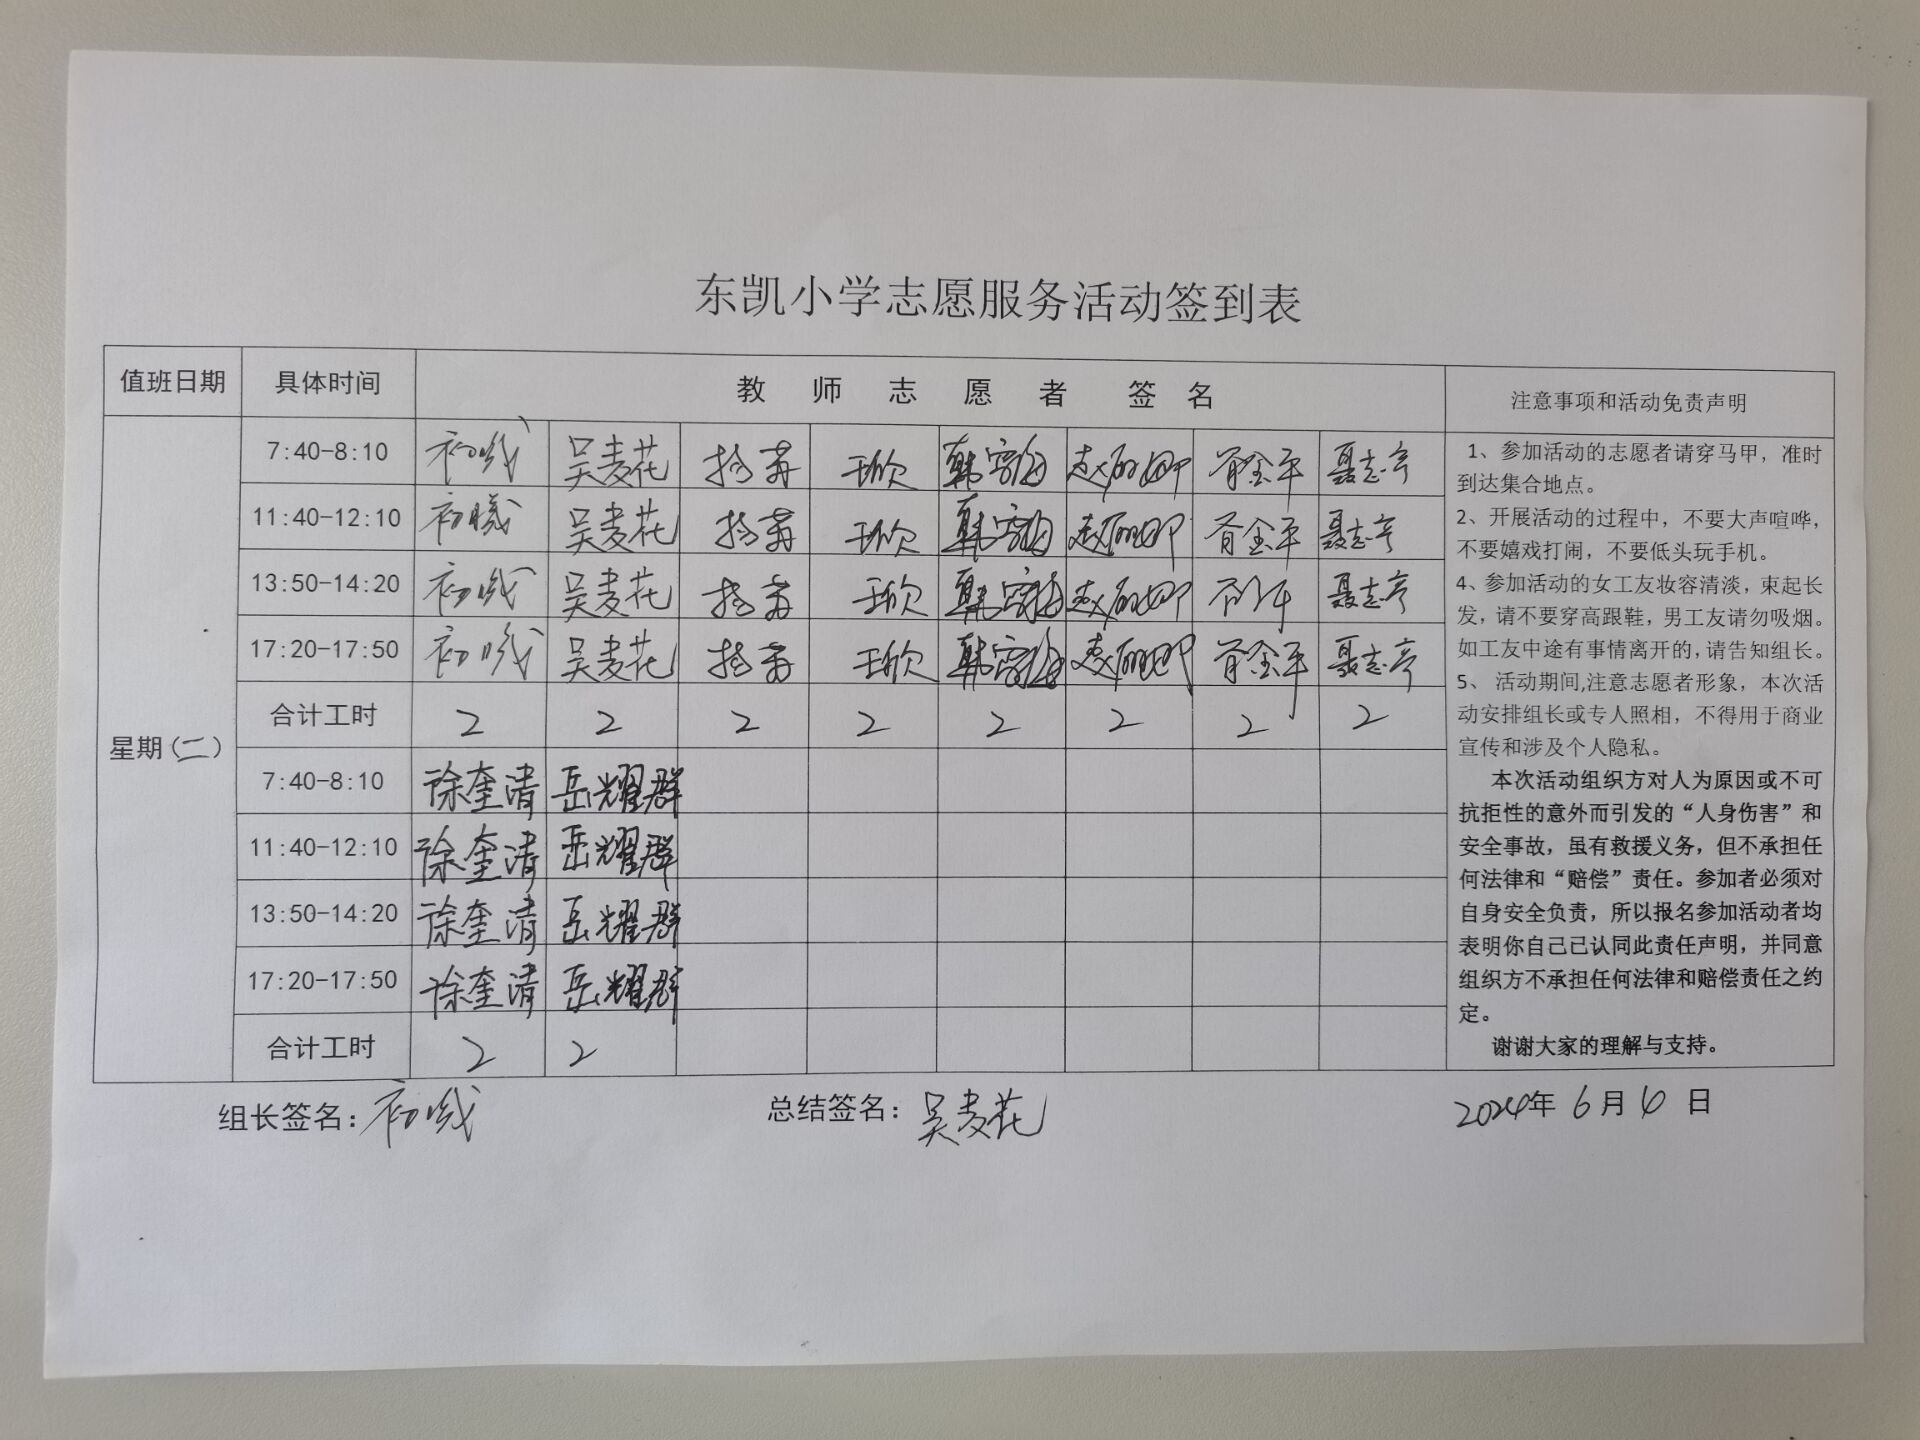 东凯小学志愿服务活动签到表
值班日期 具体时间 教师志愿者签名 注意事项和活动免责声明
星期(二)
7:40-8:10 初曦 吴麦花 杨苒 王欣 赵丽娜 肖金平 聂志亭
11:40-12:10 初曦 吴麦花 杨苒 王欣 赵丽娜 肖金平 聂志亭
13:50-14:20 初曦 吴麦花 杨苒 王欣 赵丽娜 聂志亭
17:20-17:50 初曦 吴麦花 杨苒 王欣 赵丽娜 肖金平 聂志亭
合计工时 2 2 2 2 2 2 2 2
7:40-8:10 徐奎清 岳耀群
11:40-12:10 徐奎清 岳耀群
13:50-14:20 徐奎清 岳耀群
17:20-17:50 徐奎清 岳耀群
合计工时 2 2
1、参加活动的志愿者请穿马甲，准时
到达集合地点。
2、开展活动的过程中，不要大声喧哗，
不要嬉戏打闹，不要低头玩手机。
4、参加活动的女工友妆容清淡，束起长
发，请不要穿高跟鞋，男工友请勿吸烟。
如工友中途有事情离开的，请告知组长。
5、 活动期间,注意志愿者形象，本次活
动安排组长或专人照相，不得用于商业
宣传和涉及个人隐私。
本次活动组织方对人为原因或不可
抗拒性的意外而引发的“人身伤害”和
安全事故，虽有救援义务，但不承担任
何法律和“赔偿”责任。参加者必须对
自身安全负责，所以报名参加活动者均
表明你自己已认同此责任声明，并同意
组织方不承担任何法律和赔偿责任之约
定。
谢谢大家的理解与支持。
组长签名：初曦 总结签名：吴麦花 2024年 6月 6 日